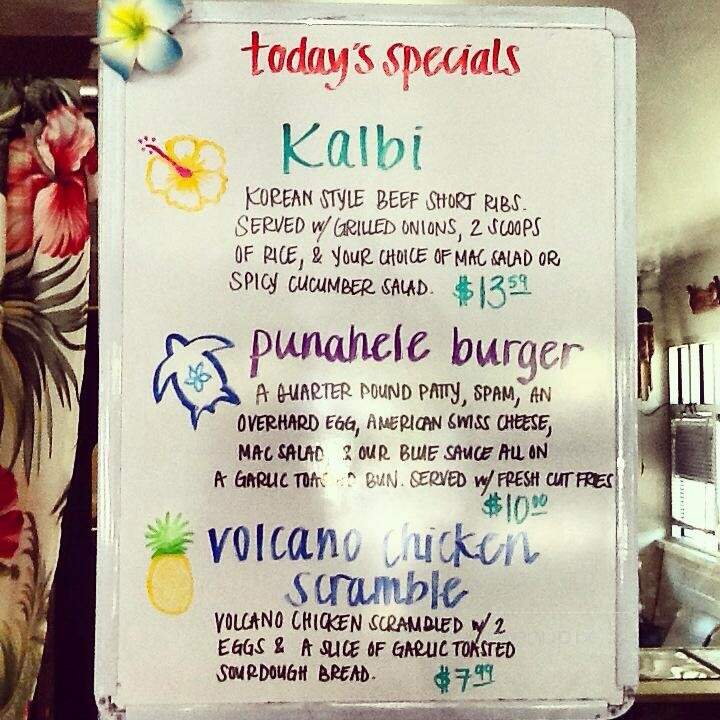 today's specials
Kalbi
KOREAN STYLE BEEF SHORT RIBS.
SERVED W/ GRILLED ONIONS, 2 SCOOPS
OF RICE, & YOUR CHOICE OF MAC SALAD OR
SPICY CUCUMBER SALAD. $13 59
punahele burger
A QUARTER POUND PATTY, SPAM, AN
OVERHARD EGG, AMERICAN SWISS CHEESE,
MAC SALAD & OUR BLUE SAUCE ALL ON
A GARLIC TOASTED BUN. SERVED W/ FRESH CUT FRIES
$10 00
volcano chicken
scramble
VOLCANO CHICKEN SCRAMBLED W/ 2
EGGS & A SLICE OF GARLIC TOASTED
SOURDOUGH BREAD. $7 99